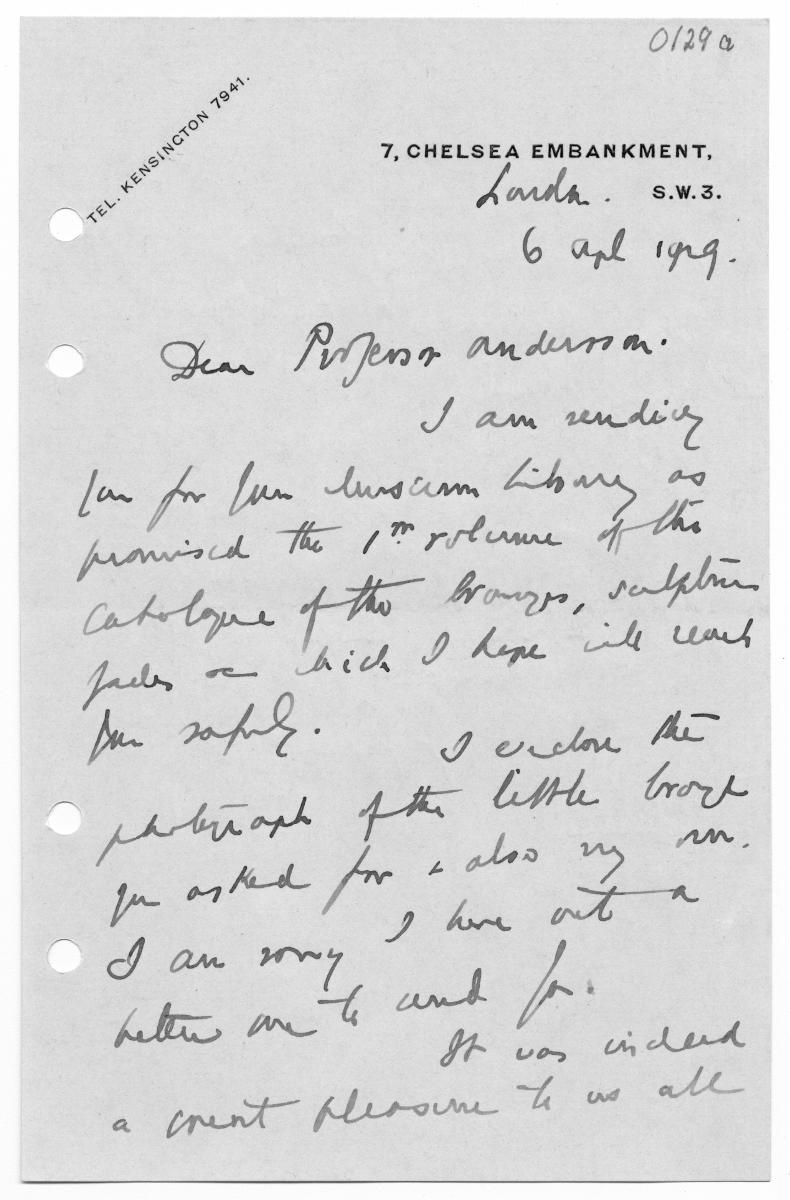 0129 a
TEL. KENSINGTON 7941.
7, CHELSEA EMBANKMENT,
London. S.W.3.
6 Apl 1929.
Dear Professor Andersson.
I am sending
you for your Museum Library as
promised the 1st volume of the
Catalogue of the bronzes, sculpture
jades &c which I hope will reach
you safely.
I enclose the
photograph of the little bronze
you asked for & also my own.
I am sorry I have not a
better one to send you.
It was indeed
a great pleasure to us all